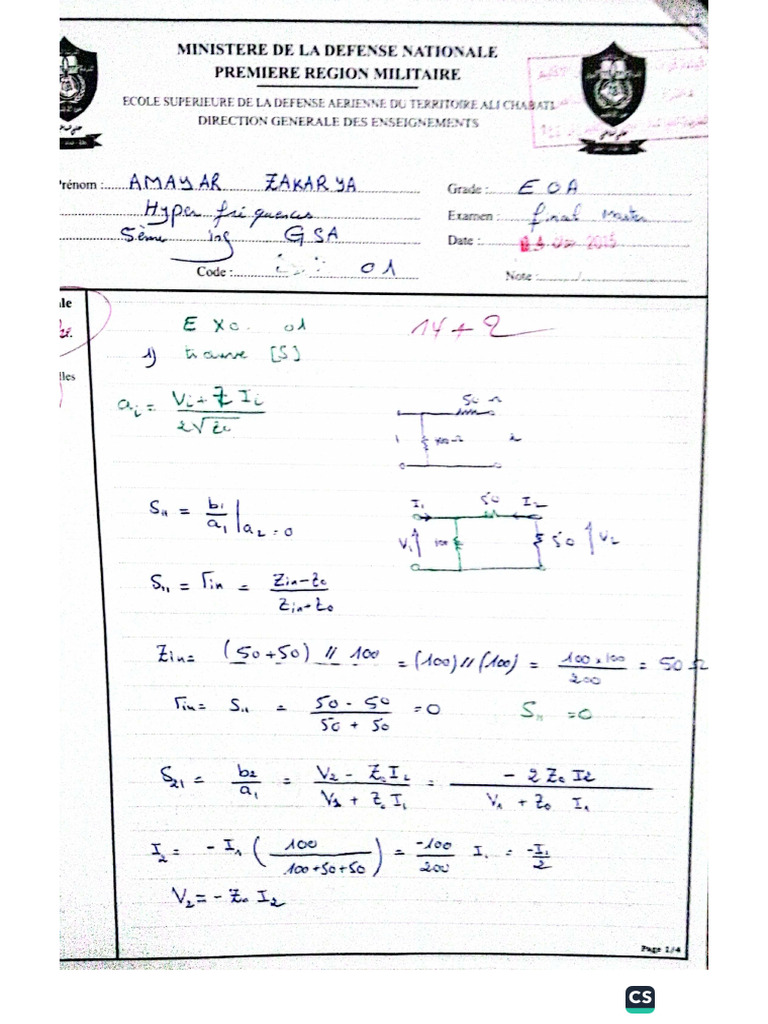 MINISTERE DE LA DEFENSE NATIONALE
PREMIERE REGION MILITAIRE
ECOLE SUPERIEURE DE LA DEFENSE AERIENNE DU TERRITOIRE ALI CHABATI
DIRECTION GENERALE DES ENSEIGNEMENTS
Prénom : AMAYAR ZAKARYA
Grade : EOA
Hyper fréquences
Examen : final
5ème ing GSA
Date : 2015
Code : 01
Note :
ale
lles
Exo. 01
14 + 2
1) trouve [S]
ai = Vi + Z Ii / 2√Zi
50 Ω
100 Ω
1
2
S11 = b1/a1 | a2 = 0
I1 50 I2
V1 100 50 V2
S11 = Γin = Zin - Z0 / Zin + Z0
Zin = (50+50) // 100 = (100) // (100) = 100 × 100 / 200 = 50 Ω
Γin = S11 = 50 - 50 / 50 + 50 = 0 S11 = 0
S21 = b2/a1 = V2 - Z0 I2 / V1 + Z0 I1 = - 2 Z0 I2 / V1 + Z0 I1
I2 = - I1 ( 100 / 100+50+50 ) = -100/200 I1 = -I1/2
V2 = - Z0 I2
Page 1/4
CS